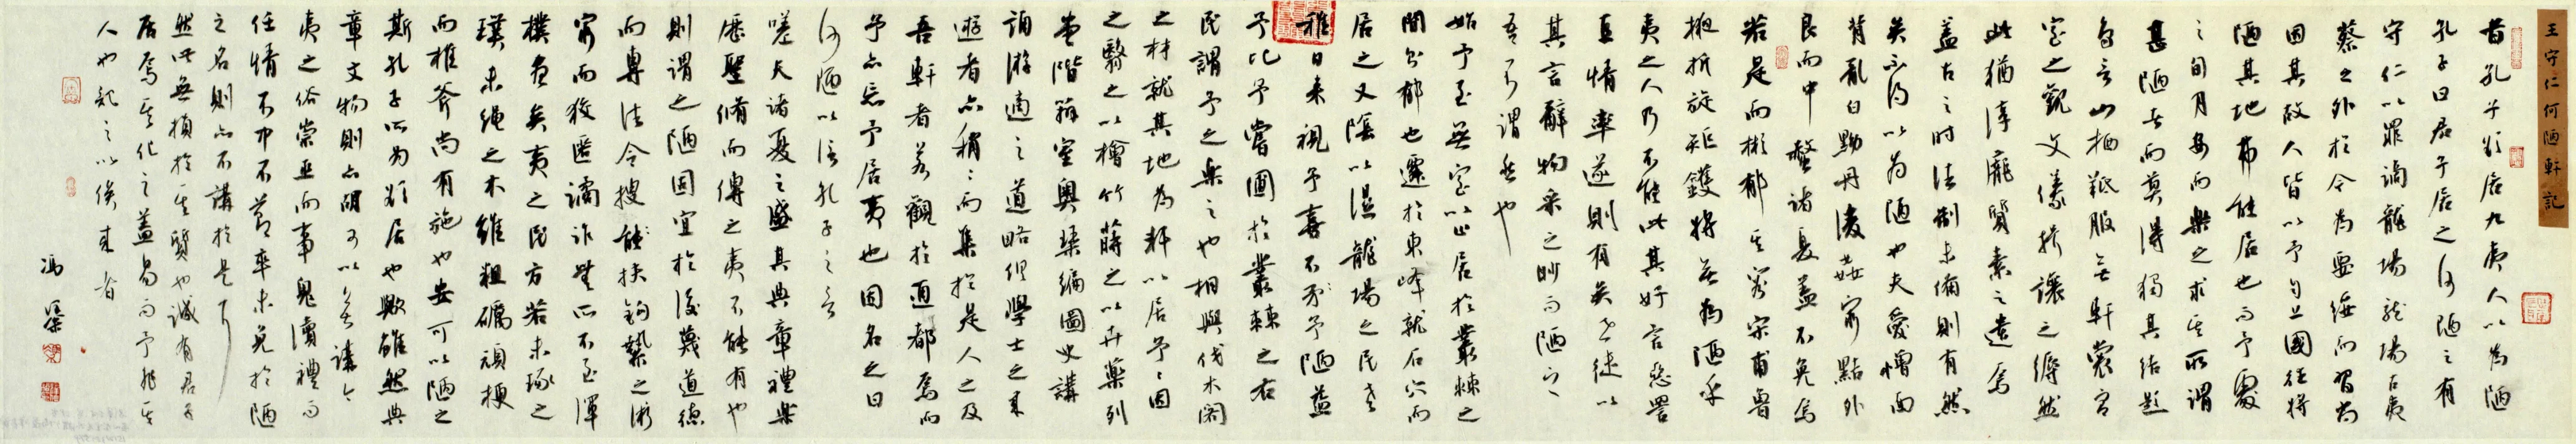 王守仁何陋軒記
昔孔子欲居九夷人以為陋
孔子曰君子居之何陋之有
守仁以罪謫龍場龍場古夷
蔡之外於今為要綏而習尚
因其故人皆以予自上國往將
陋其地弗能居也而予處
之旬月安而樂之求其所謂
甚陋者而莫得獨其結題
鳥言山栖羝服無軒裳宮
室之觀文儀揖讓之縟然
此猶淳龐質素之遺焉
蓋古之時法制未備則有然
矣不得以為陋也夫愛憎面
背亂白黝丹浚姦窮黠外
良而中螫諸夏蓋不免焉
若是而彬郁其容宋甫魯
掖折旋矩矱將無為陋乎
夷之人乃不能此其好言惡詈
直情率遂則有矣世徒以
其言辭物采之眇而陋之
吾不謂然也
始予至無室以止居於叢棘之
間則郁也遷於東峰就石穴而
居之又陰以濕龍場之民老
稚日來視予喜不予陋益
予比予嘗圃於叢棘之右
民謂予之樂之也相與伐木閣
之材就其地為軒以居予予因
之翳之以檜竹蒔之以卉藥列
堂階辯室奧琴編圖史講
誦游適之道略俱學士之來
遊者亦稍稍而集於是人之及
吾軒者若觀於通都焉而
予亦忘予居夷也因名之曰
何陋以信孔子之言
嗟夫諸夏之盛其典章禮樂
歷聖脩而傳之夷不能有也
則謂之陋固宜於後蔑道德
而專法令搜抉鉤縶之術
窮而狡匿譎詐無所不至渾
樸盡矣夷之民方若未琢之
璞未繩之木雖粗礪頑梗
而椎斧尚有施也安可以陋之
斯孔子所為欲居也歟雖然典
章文物則亦胡可以無講今
夷之俗崇巫而事鬼瀆禮而
任情不中不節卒未免於陋
之名則亦不講於是耳
然此無損於其質也誠有君子
居焉其化之蓋易而予非其
人也記之以俟來者
馮